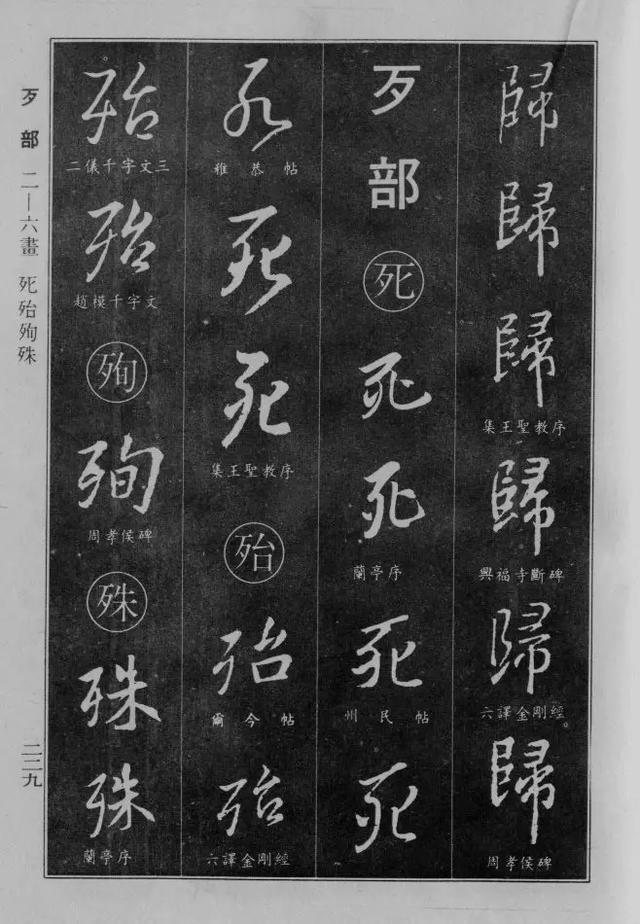 歹部 二—六畫 死殆殉殊
二二九
歸
歸
歸
集王聖教序
歸
興福寺斷碑
歸
六譯金剛經
歸
周孝侯碑
歹部
死
死
死
蘭亭序
死
州民帖
死
死
雅恭帖
死
死
集王聖教序
殆
殆
爾今帖
殆
六譯金剛經
殆
二儀千字文三
殆
趙模千字文
殉
殉
周孝侯碑
殊
殊
殊
蘭亭序